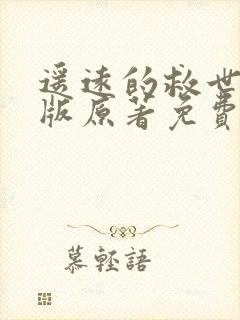 遥远的救世
版原著免費
慕輕語